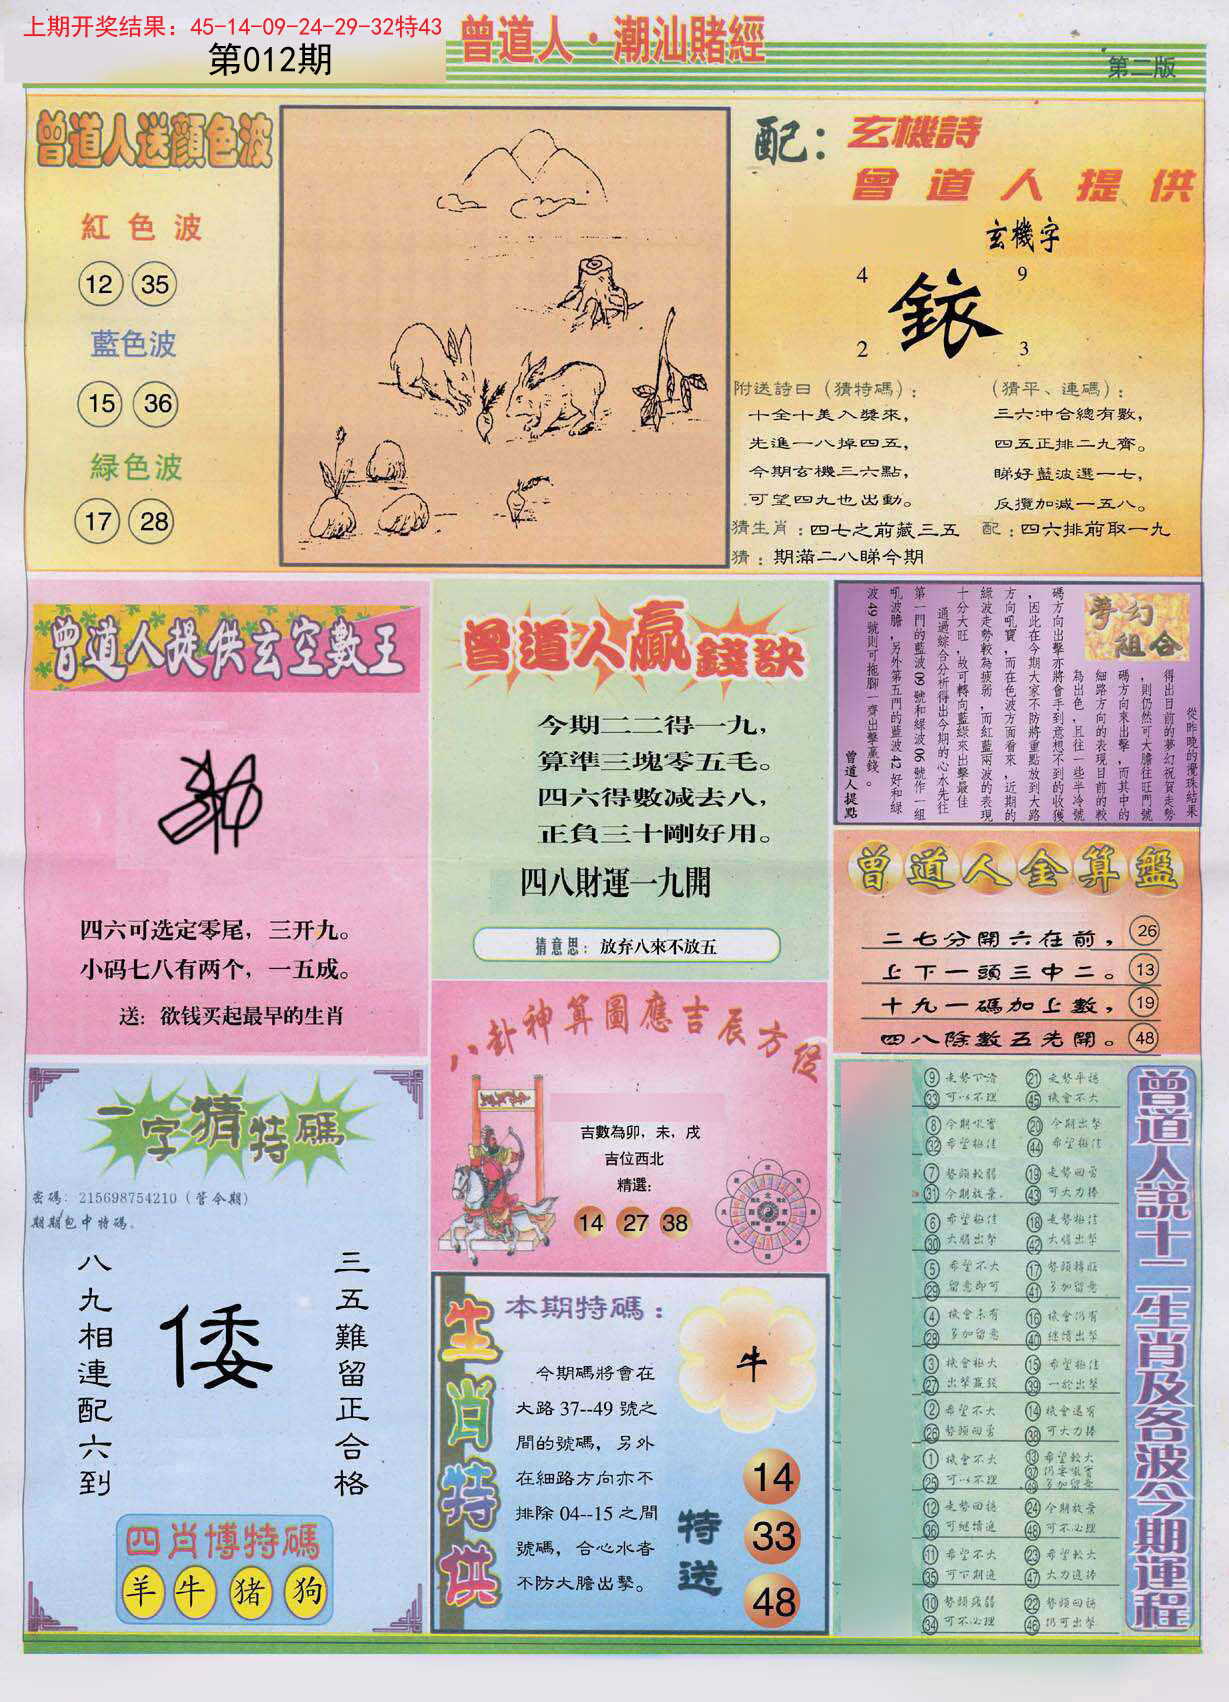 上期开奖结果：45-14-09-24-29-32特43
第012期
曾道人·潮汕賭經
第二版
曾道人送顔色波
紅色波
12 35
藍色波
15 36
緑色波
17 28
配：玄機詩
曾道人提供
玄機字
4 9
2 3
附送詩曰（猜特碼）：
十全十美入獎來，
先進一八掉四五，
今期玄機三六點，
可望四九也出動。
（猜平、連碼）：
三六冲合總有數，
四五正排二九齊。
睇好藍波選一七，
反攬加减一五八。
猜生肖：四七之前藏三五
配：四六排前取一九
猜：期滿二八睇今期
曾道人提供玄空數王
四六可选定零尾，三开九。
小码七八有两个，一五成。
送：欲钱买起最早的生肖
曾道人贏錢訣
今期二二得一九，
算準三塊零五毛。
四六得數减去八，
正負三十剛好用。
四八財運一九開
猜意思：放弃八來不放五
夢幻組合
從昨晚的攪珠結果
得出目前的夢幻祝賀走勢
，則仍然可大膽往旺門號
碼方向來出擊，而其中的
細路方向的表現目前的較
為出色，且往一些半冷號
碼方向出擊亦將會手到意想不到的收獲
，因此在今期大家不防將重點放到大路
方向吼寶，而在色波方面看來，近期的
綠波走勢較為疲弱，而紅藍兩波的表現
十分大旺，故可轉向藍綠來出擊最佳
通過綜合分析得出今期的心水先往
第一門的藍波09號和綠波06號作一組
吼波膽，另外第五門的藍波42好和綠
波49號則可拖腳一齊出擊贏錢。
曾道人提點
曾道人金算盤
二七分開六在前，26
上下一頭三中二。13
十九一碼加上數，19
四八除數五先開。48
一字猜特碼
密碼：215698754210（管令期）
期期包中特碼。
三五難留正合格
倭
八九相連配六到
四肖博特碼
羊 牛 猪 狗
八卦神算圖應吉辰方位
吉數為卯，未，戌
吉位西北
精選：
14 27 38
生肖特供
本期特碼：
牛
今期碼將會在
大路37--49號之
間的號碼，另外
在細路方向亦不
排除04--15之間
號碼，合心水者
不防大膽出擊。
特送
14
33
48
曾道人説十二生肖及各波今期運程
9 33 走勢下滑 可以不理
21 45 走勢平穩 機會不大
8 32 今期吼寶 希望極佳
20 44 今期出擊 希望極佳
7 31 勢頭較弱 今期放棄
19 43 走勢回勇 可大力捧
6 30 希望極佳 大膽出擊
18 42 走勢極佳 大膽出擊
5 29 希望不大 留意即可
17 41 勢頭轉旺 多加留意
4 28 機會未有 多加留意
16 40 機會仍有 繼續出擊
3 27 機會極大 出擊贏錢
15 39 希望極佳 一於出擊
2 26 希望不大 勢頭回勇
14 38 機會還有 可大力捧
1 25 機會不大 可以不理
13 37 49 希望較大 仍要吼實 多加留意
12 36 走勢回穩 可繼續追
24 48 今期放棄 可不必理
11 35 希望不大 可下期追
23 47 希望較大 大力追捧
10 34 勢頭疲弱 可不必理
22 46 勢頭回穩 仍可出擊